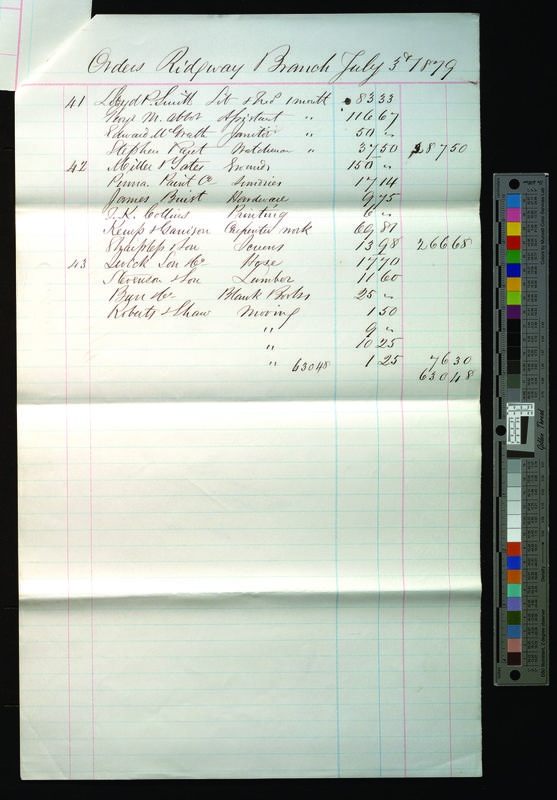 Orders Ridgway Branch July 3d 1879
41 Lloyd P. Smith Lib & Trs 1 month 83 33
Geo. M. Abbot Assistant " 116 67
Edward McGrath Janitor " 50 "
Stephen Paget Watchman " 37 50 287 50
42 Miller & Yates Grounds 150 "
Penna Paint Co Sundries 17 14
James Buist Hardware 9 75
J. K. Collins Printing 6 "
Kemp & Garrison Carpenter work 69 81
Sharpless & Son Screens 13 98 266 68
43 Quick Son & Co Hose 17 70
Stevenson & Son Lumber 11 60
Burr & Co Blank Books 25 "
Roberts & Shaw Moving 1 50
" 9 "
" 10 25
" 630 48 1 25 76 30
630 48